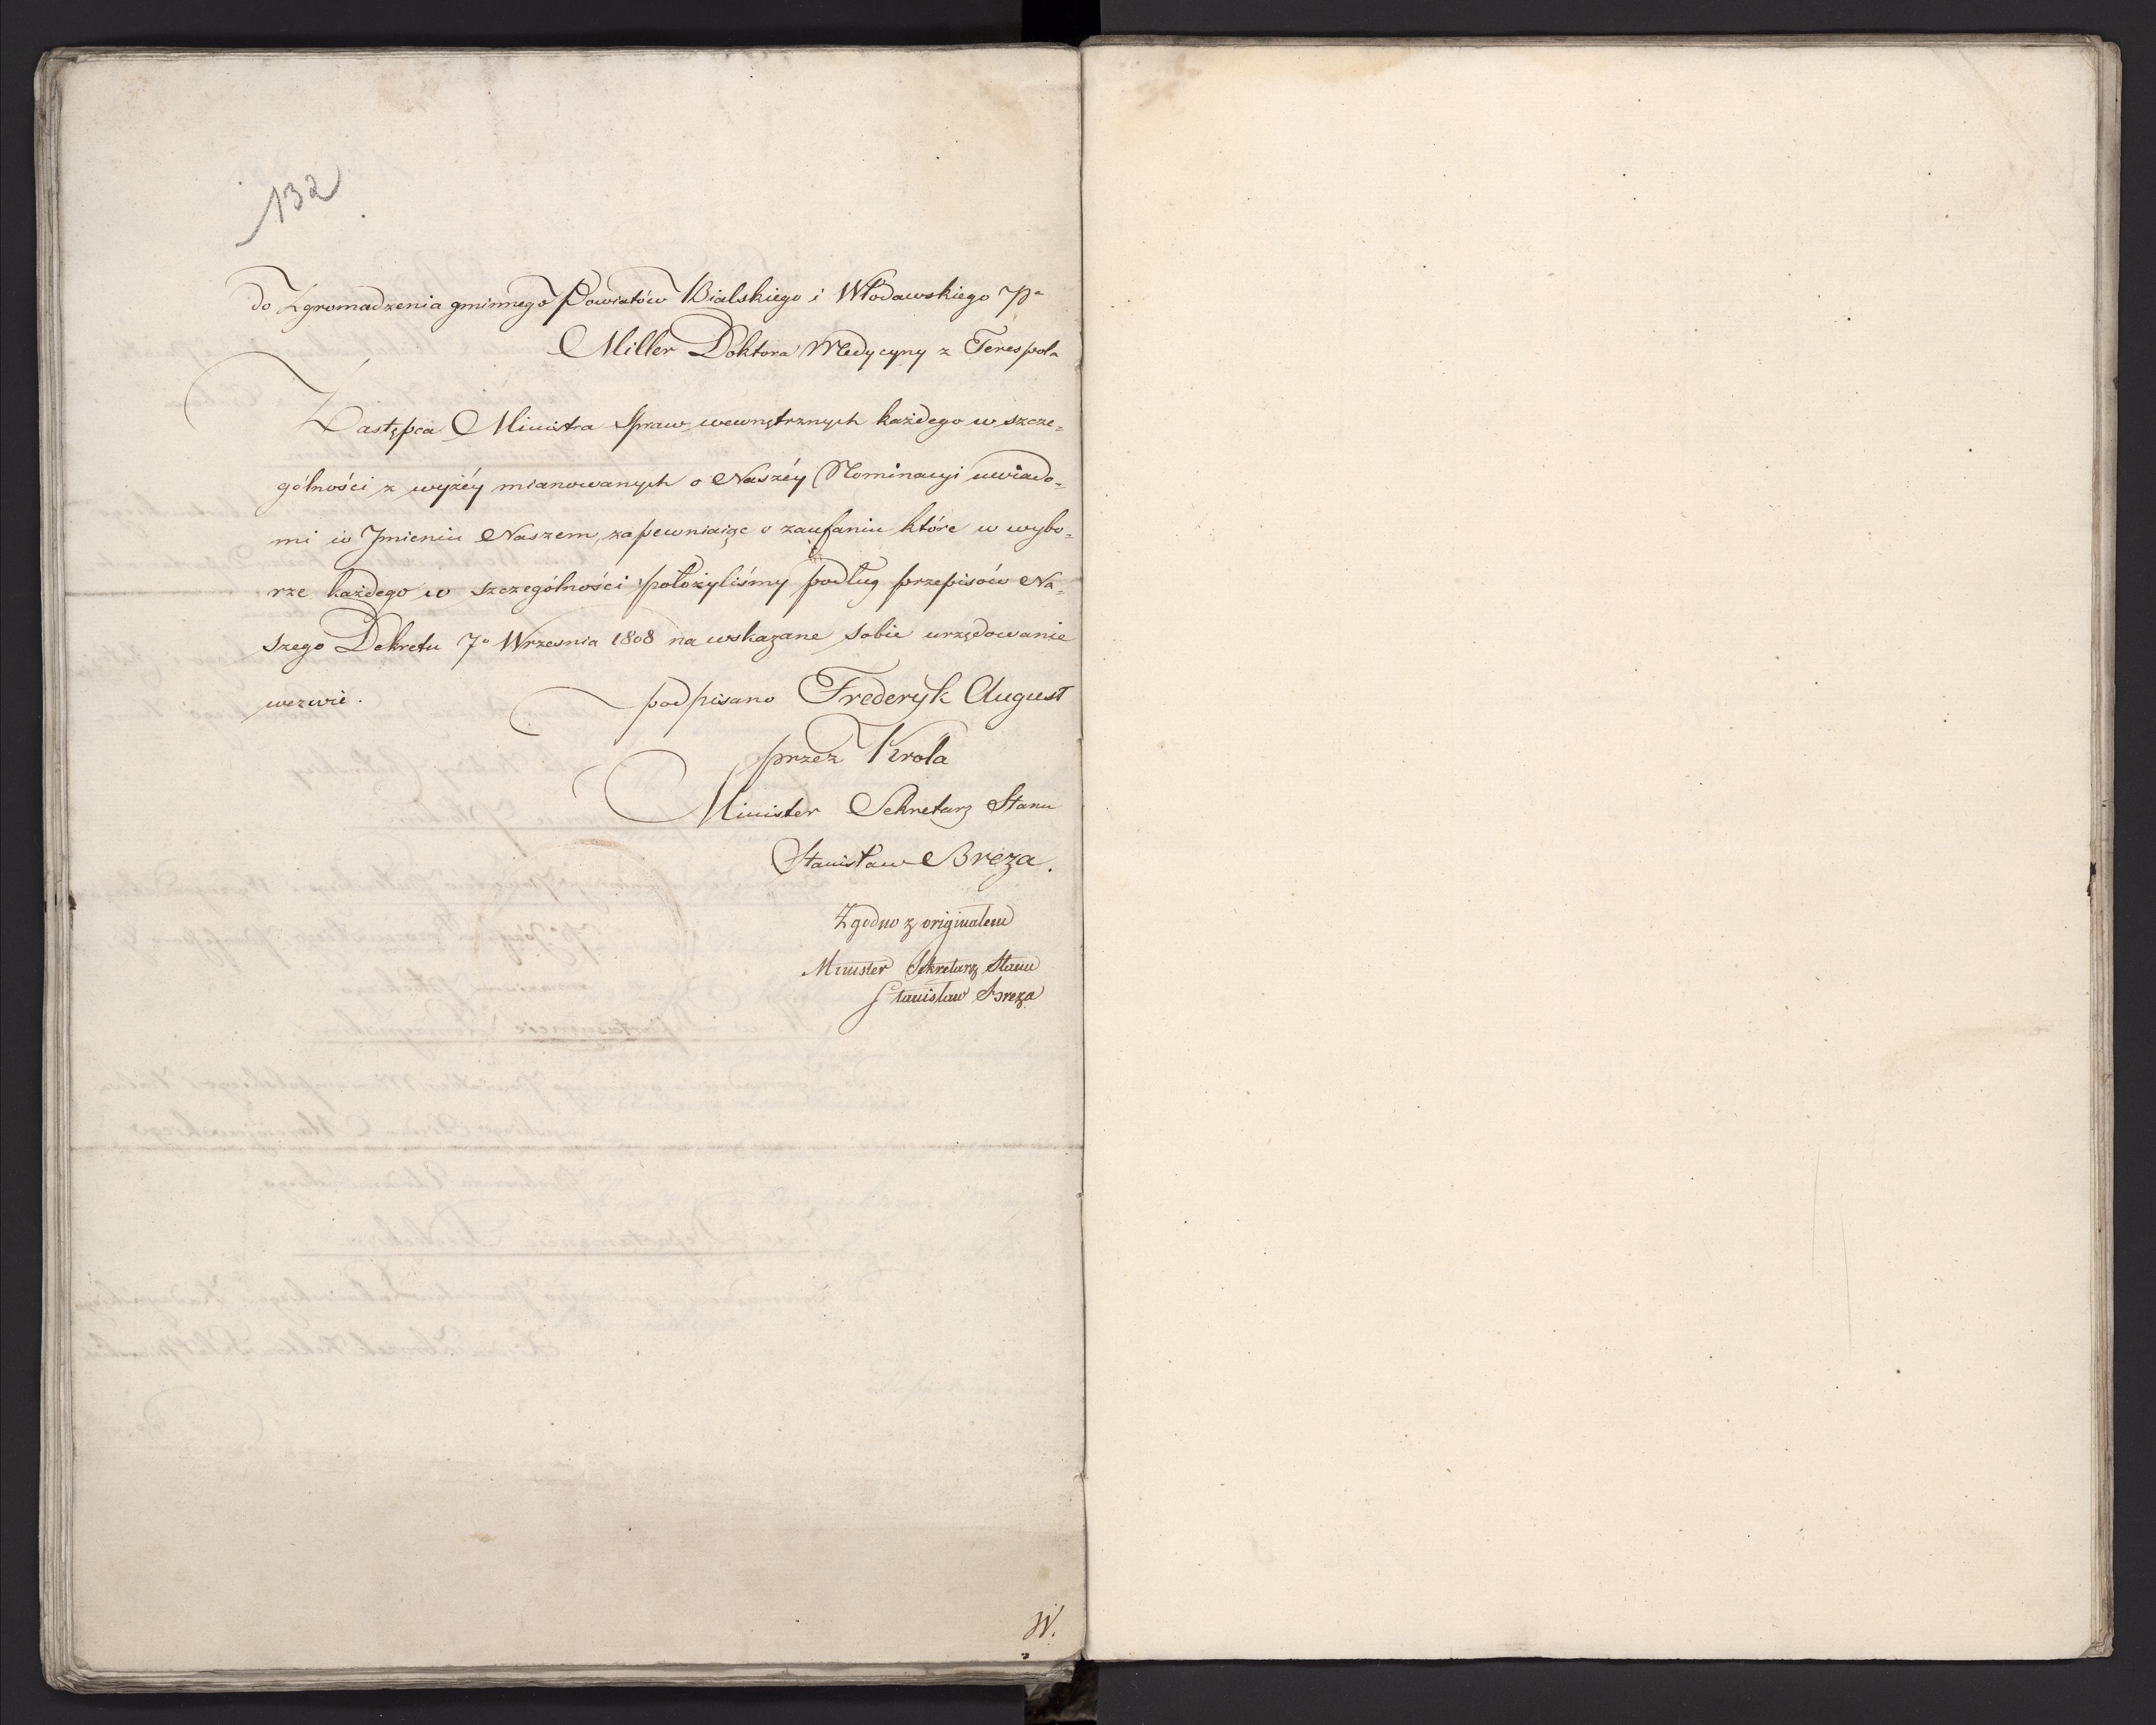 132
do Zgromadzenia gminnego Powiatów Bialskiego i Włodawskiego Pa
Miller Doktora Medycyny z Terespola
Zastępca Ministra Spraw wewnętrznych każdego w szcze=
gólności z wyżéy mianowanych o Naszéy Nominacyi uwiado=
mi w Jmieniu Naszem, zapewniaiąc o zaufaniu które w wybo=
rze każdego w szczególności położyliśmy podług przepisów Na=
szego Dekretu 7o Wrzesnia 1808 na wskazane sobie urzędowanie
wezwie.
podpisano Frederyk August
przez Króla
Minister Sekretarz Stanu
Stanisław Breza.
Zgodno z originalem
Minister Sekretarz Stanu
Stanisław Breza
W.